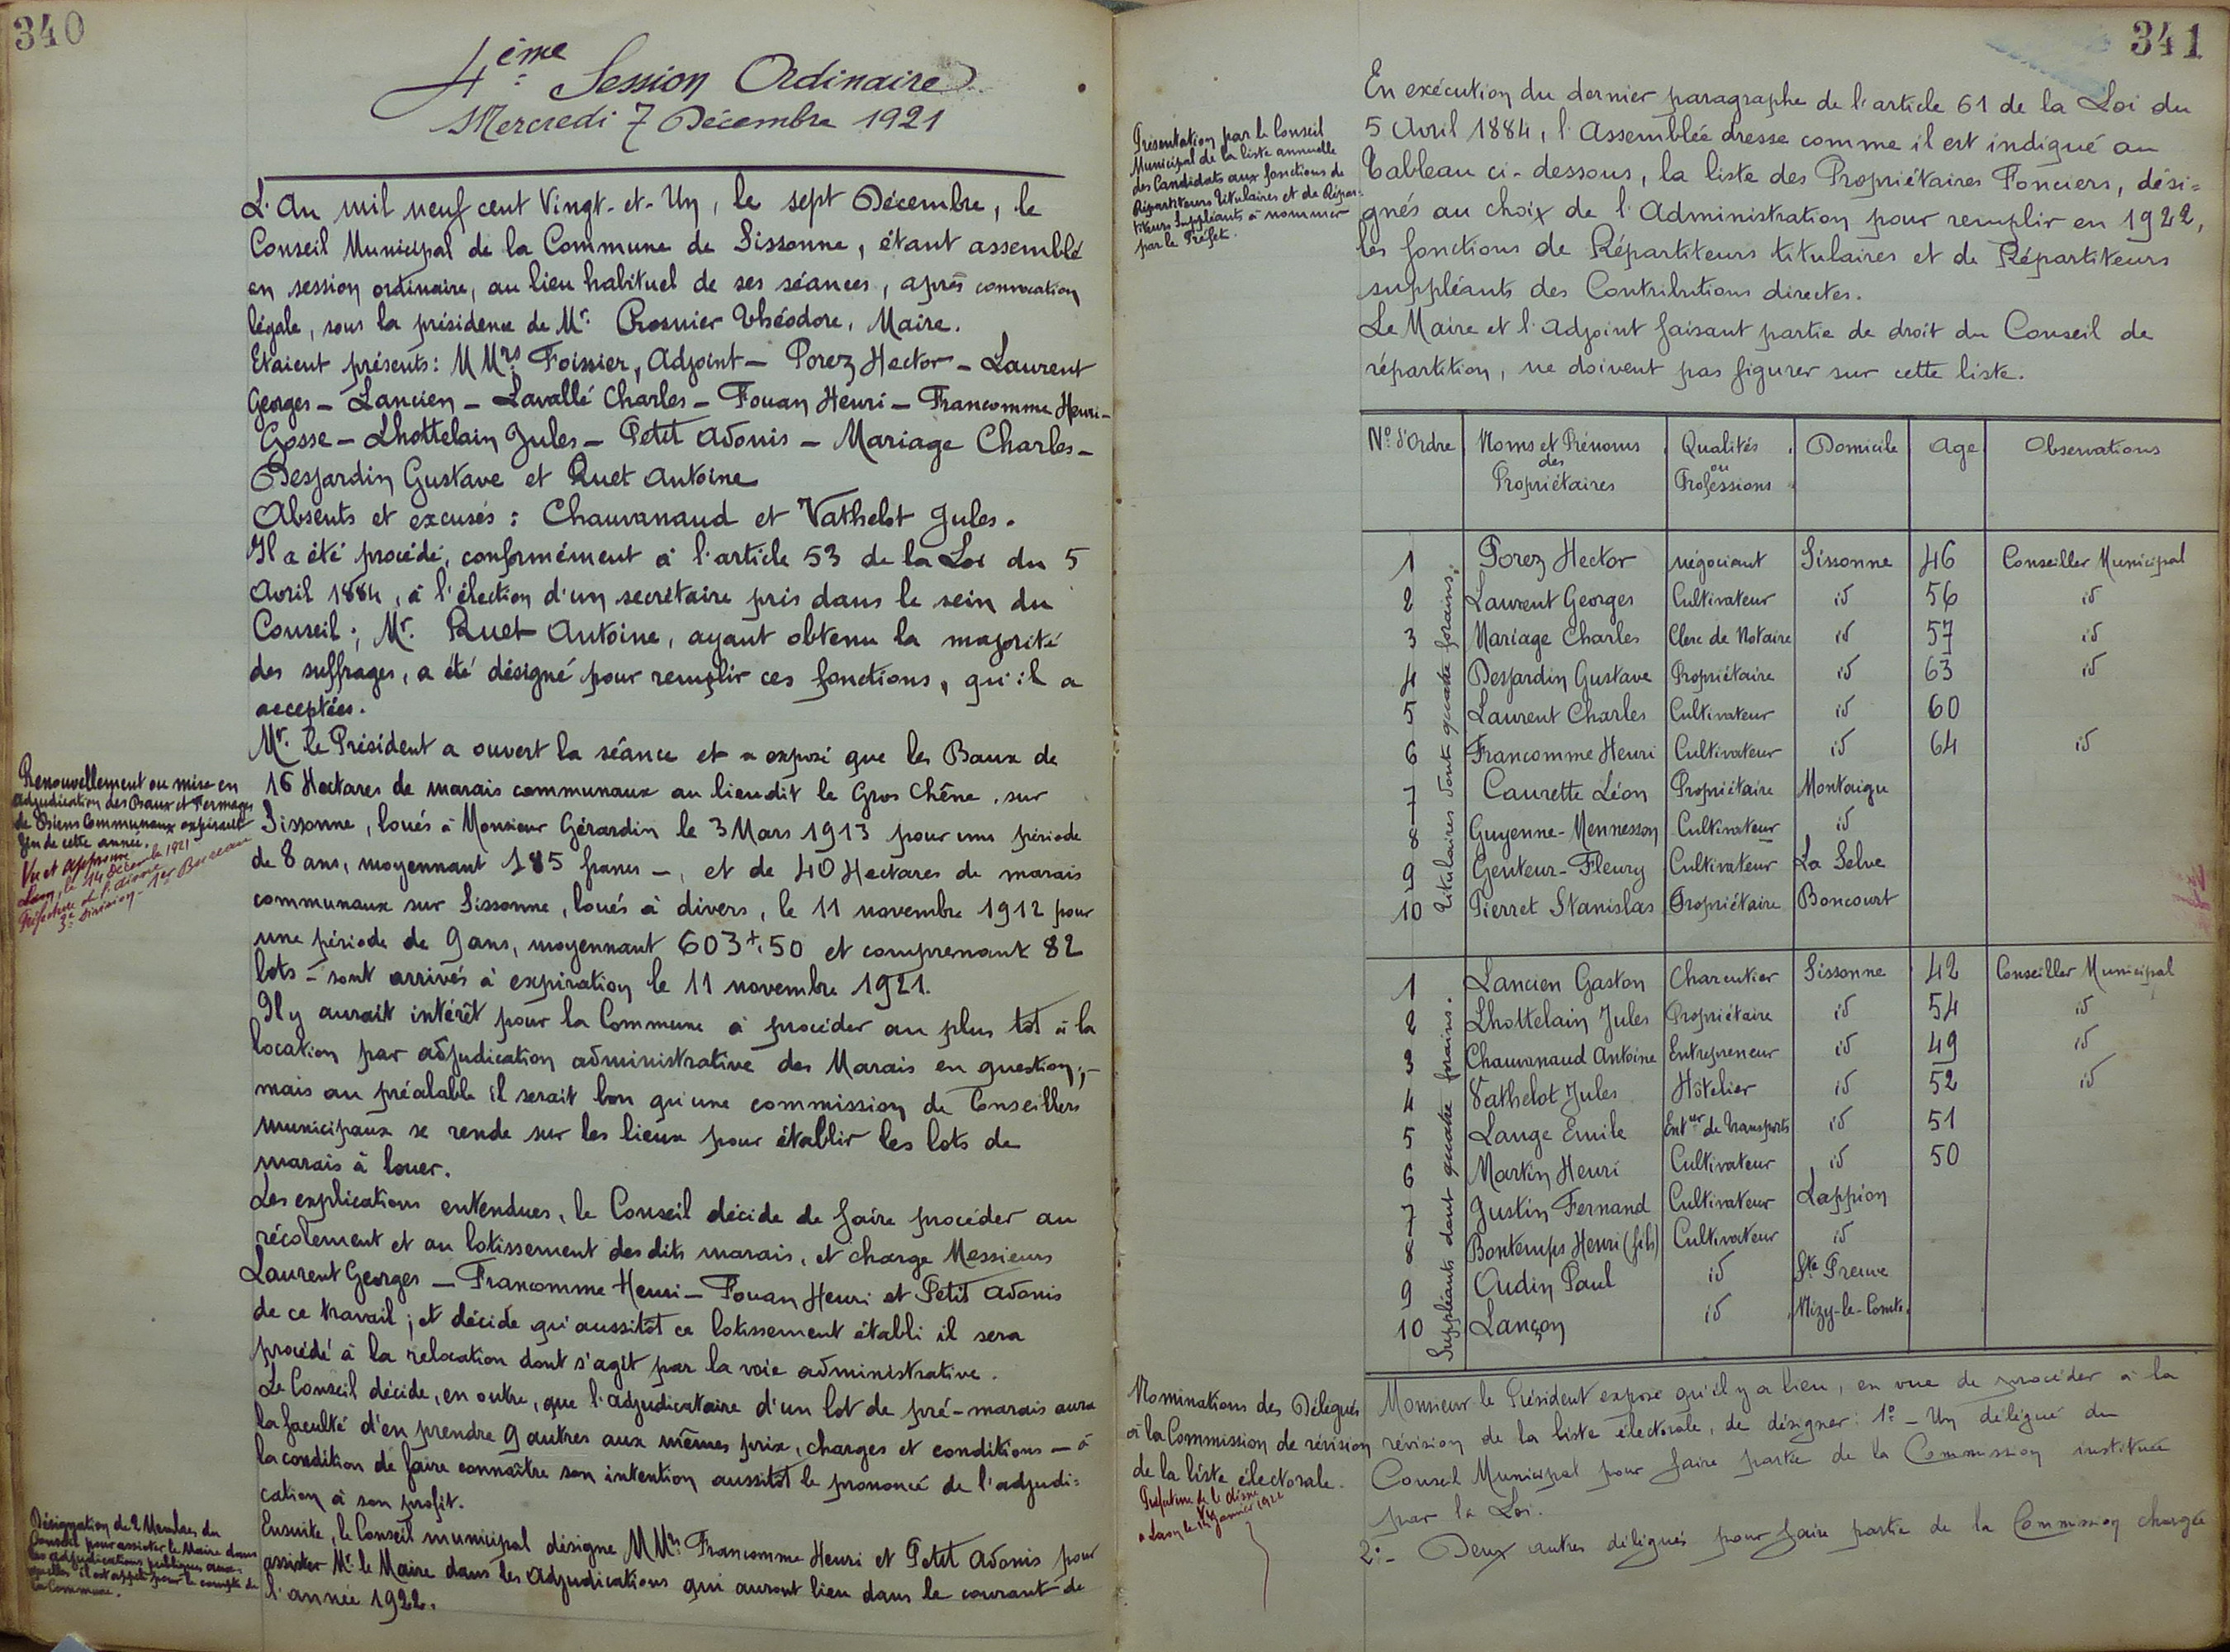 340
4ème Session Ordinaire
Mercredi 7 Décembre 1921
L'An mil neuf cent Vingt-et-Un, le sept Décembre, le
Conseil Municipal de la Commune de Sissonne, étant assemblé
en session ordinaire, au lieu habituel de ses séances, après convocation
légale, sous la présidence de Mr. Théodore, Maire.
Etaient présents: MMrs Foissier, Adjoint - Porez Hector - Laurent
Georges - Lancien - Lavallé Charles - Fouan Henri - Francomme Henri -
Gosse - Lhottelain Jules - Petit Adonis - Mariage Charles -
Desjardin Gustave et Ruet Antoine
Absents et excusés: Chauvanaud et Vathelot Jules.
Il a été procédé, conformément à l'article 53 de la Loi du 5
Avril 1884, à l'élection d'un secrétaire pris dans le sein du
Conseil; Mr. Ruet Antoine, ayant obtenu la majorité
des suffrages, a été désigné pour remplir ces fonctions, qu'il a
acceptées.
Mr. le Président a ouvert la séance et a exposé que les Baux de
16 Hectares de marais communaux au lieudit le Gros Chêne, sur
Sissonne, loués à Monsieur Gérardin le 3 Mars 1913 pour une période
de 8 ans, moyennant 185 francs -, et de 40 Hectares de marais
communaux sur Sissonne, loués à divers, le 11 novembre 1912 pour
une période de 9 ans, moyennant 603f,50 et comprenant 82
lots - sont arrivés à expiration le 11 novembre 1921.
Il y aurait intérêt pour la Commune à procéder au plus tôt à la
location par adjudication administrative des Marais en question;-
mais au préalable il serait bon qu'une commission de Conseillers
municipaux se rende sur les lieux pour établir les lots de
marais à louer.
Les explications entendues, le Conseil décide de faire procéder au
récolement et au lotissement des dits marais, et charge Messieurs
Laurent Georges - Francomme Henri - Fouan Henri et Petit Adonis
de ce travail; et décide qu'aussitôt ce lotissement établi il sera
procédé à la relocation dont s'agit par la voie administrative.
Le Conseil décide, en outre, que l'adjudicataire d'un lot de pré-marais aura
la faculté d'en prendre 9 autres aux mêmes prix, charges et conditions - à
la condition de faire connaître son intention aussitôt le prononcé de l'adjudi=
cation à son profit.
Ensuite, le Conseil municipal désigne MMrs Francomme Henri et Petit Adonis pour
assister Mr le Maire dans les Adjudications qui auront lieu dans le courant de
l'année 1922.
Renouvellement ou mise en
adjudication des Baux et Fermages
de Biens Communaux expirant
fin de cette année.
Vu et Approuvé
Laon, le 14 Décembre 1921
Préfecture de l'Aisne
3e Division - 1er Bureau
Désignation de 2 Membres du
Conseil pour assister le Maire dans
les adjudications publiques aux-
quelles il est appelé pour le compte de
la Commune.
341
Présentation par le Conseil
Municipal de la liste annuelle
des Candidats aux fonctions de
Répartiteurs titulaires et de Répar-
titeurs Suppléants à nommer
par le Préfet.
En exécution du dernier paragraphe de l'article 61 de la Loi du
5 Avril 1884, l'Assemblée dresse comme il est indiqué au
Tableau ci-dessous, la liste des Propriétaires Fonciers, dési=
gnés au choix de l'Administration pour remplir en 1922,
les fonctions de Répartiteurs titulaires et de Répartiteurs
suppléants des Contributions directes.
Le Maire et l'Adjoint faisant partie de droit du Conseil de
répartition, ne doivent pas figurer sur cette liste.
No d'Ordre Noms et Prénoms des Propriétaires Qualités ou Professions Domicile Age Observations
Titulaires dont quatre forains.
1 Porez Hector négociant Sissonne 46 Conseiller Municipal
2 Laurent Georges Cultivateur id 56 id
3 Mariage Charles Clerc de Notaire id 57 id
4 Desjardin Gustave Propriétaire id 63 id
5 Laurent Charles Cultivateur id 60
6 Francomme Henri Cultivateur id 64 id
7 Caurette Léon Propriétaire Montaigu
8 Guyenne-Mennesson Cultivateur id
9 Genteur-Fleury Cultivateur La Selve
10 Pierret Stanislas Propriétaire Boncourt
Suppléants dont quatre forains.
1 Lancien Gaston Charcutier Sissonne 42 Conseiller Municipal
2 Lhottelain Jules Propriétaire id 54 id
3 Chauvanaud Antoine Entrepreneur id 49 id
4 Vathelot Jules Hôtelier id 52 id
5 Lange Emile Enteur de Transports id 51
6 Martin Henri Cultivateur id 50
7 Justin Fernand Cultivateur Lappion
8 Bontemps Henri (fils) Cultivateur id
9 Oudin Paul id Ste Preuve
10 Lançon id Nizy-le-Comte
Nominations des Délégués
à la Commission de révision
de la liste électorale.
Préfecture de l'Aisne
Laon le 14 Janvier 1922
Monsieur le Président expose qu'il y a lieu, en vue de procéder à la
révision de la liste électorale, de désigner: 1o - Un délégué du
Conseil Municipal pour faire partie de la Commission instituée
par la Loi.
2o - Deux autres délégués pour faire partie de la Commission chargée